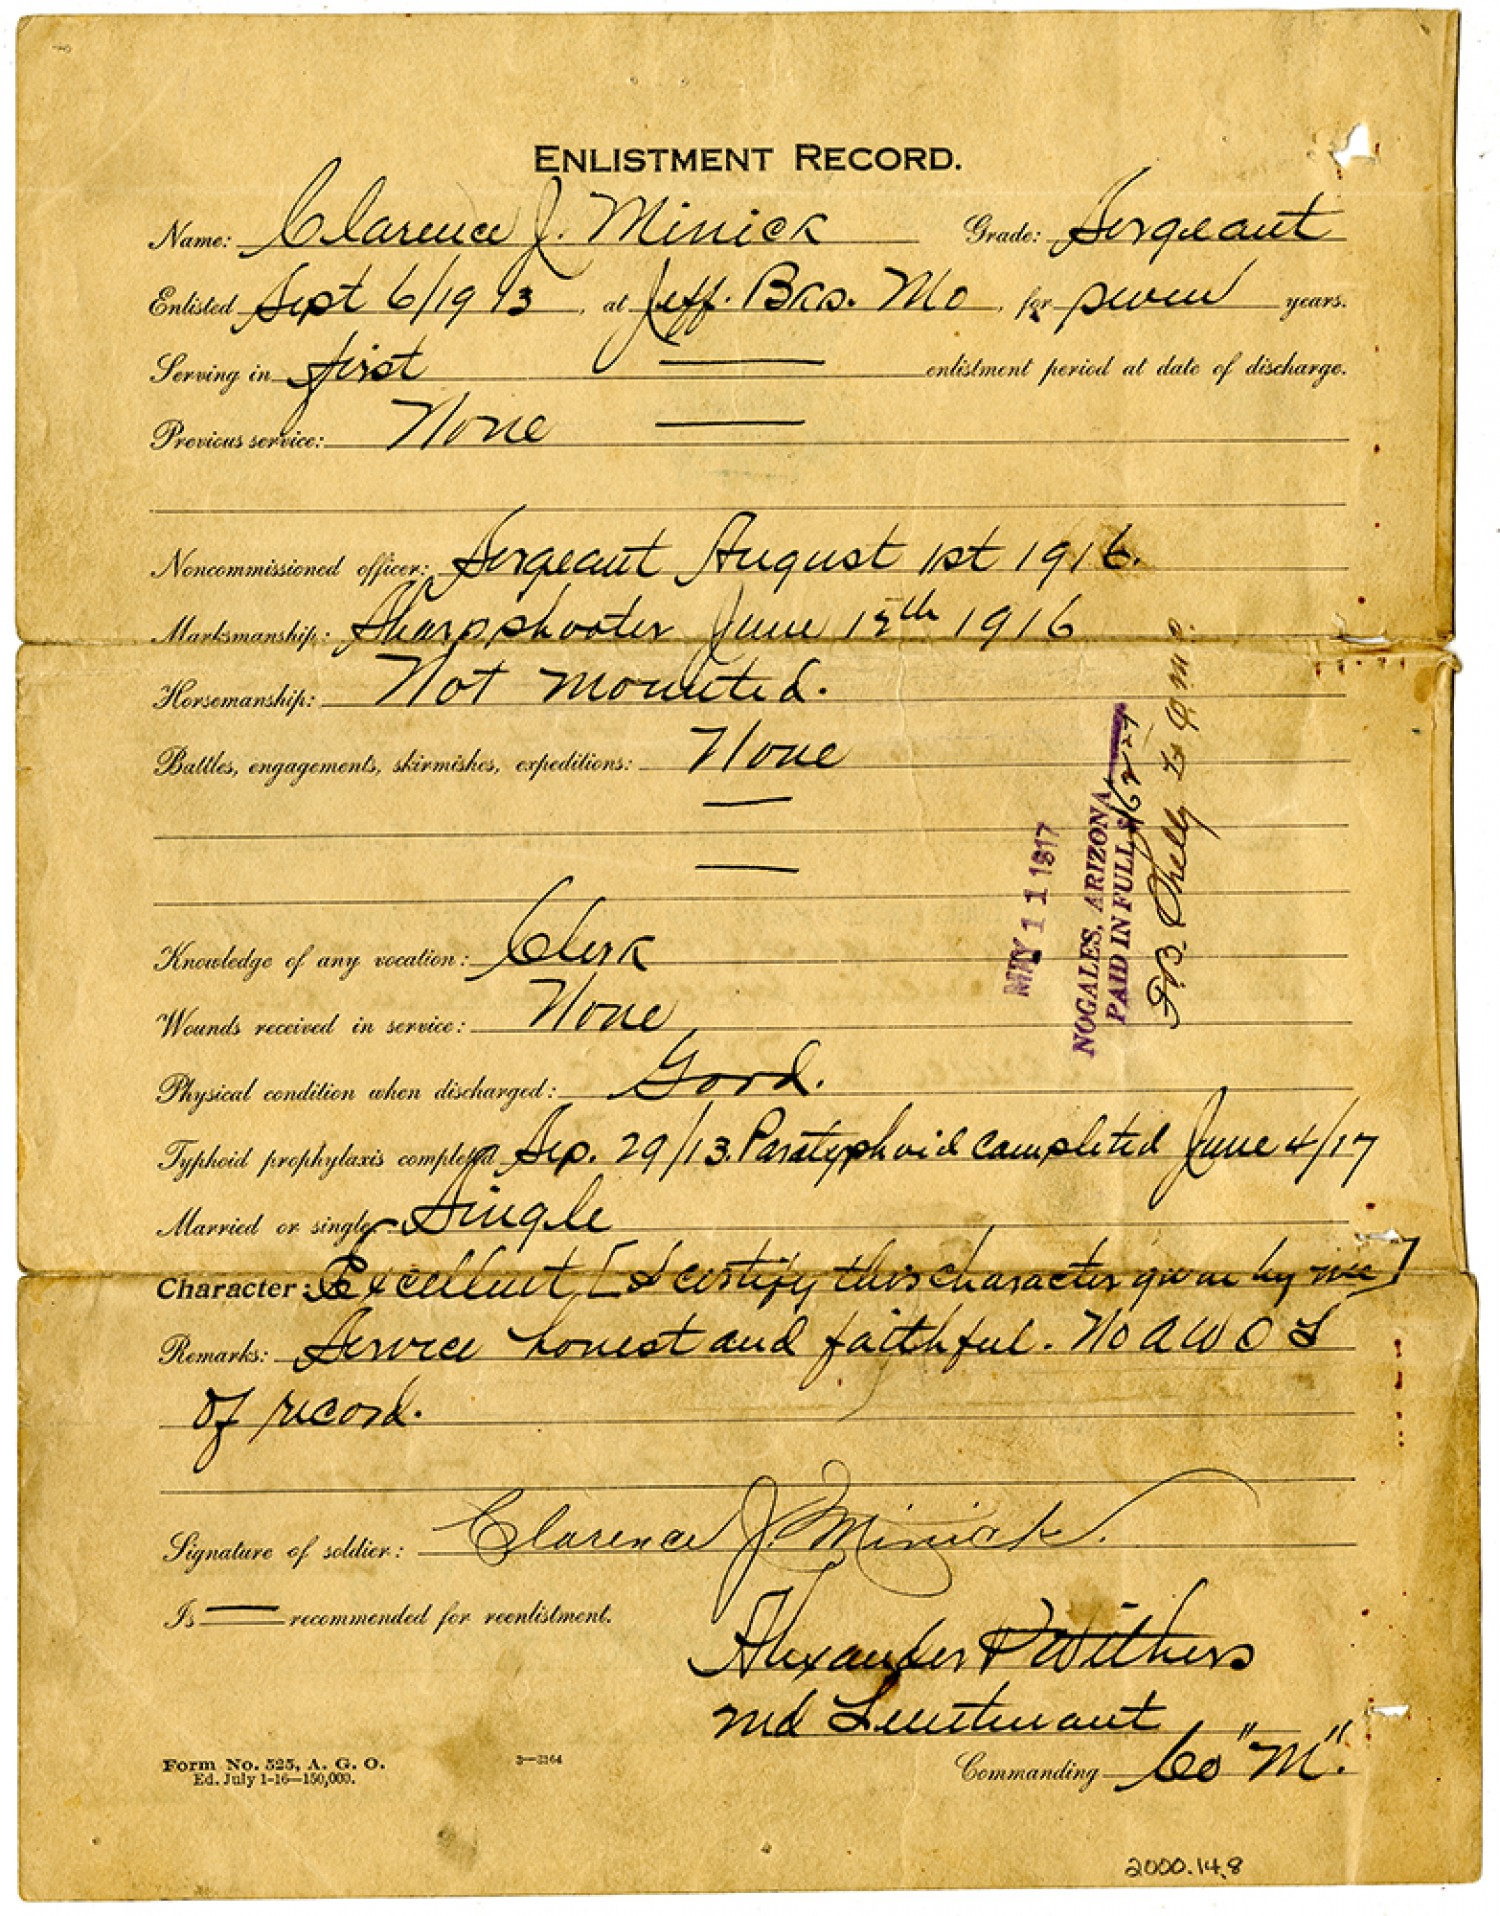 ENLISTMENT RECORD.
Name: Clarence J. Minick Grade: Sergeant
Enlisted Sept 6/1913, at Jeff. Bks. Mo, for seven years.
Serving in first — enlistment period at date of discharge.
Previous service: None —
Noncommissioned officer: Sergeant August 1st 1916.
Marksmanship: Sharpshooter June 15th 1916
Horsemanship: Not mounted.
Battles, engagements, skirmishes, expeditions: None
—
—
Knowledge of any vocation: Clerk
Wounds received in service: None
Physical condition when discharged: Good.
Typhoid prophylaxis completed Sep. 29/13. Paratyphoid completed June 4/17
Married or single: Single
Character: Excellent [I certify this character given by me]
Remarks: Service honest and faithful. No A W O L
of record.
Signature of soldier: Clarence J. Minick.
Is — recommended for reenlistment.
Alexander Withers
2nd Lieutenant
Commanding Co "M".
Form No. 525, A. G. O.
Ed. July 1-16—150,000.
3—3164
MAY 11 1917
NOGALES, ARIZONA
PAID IN FULL, $
2000.14.8